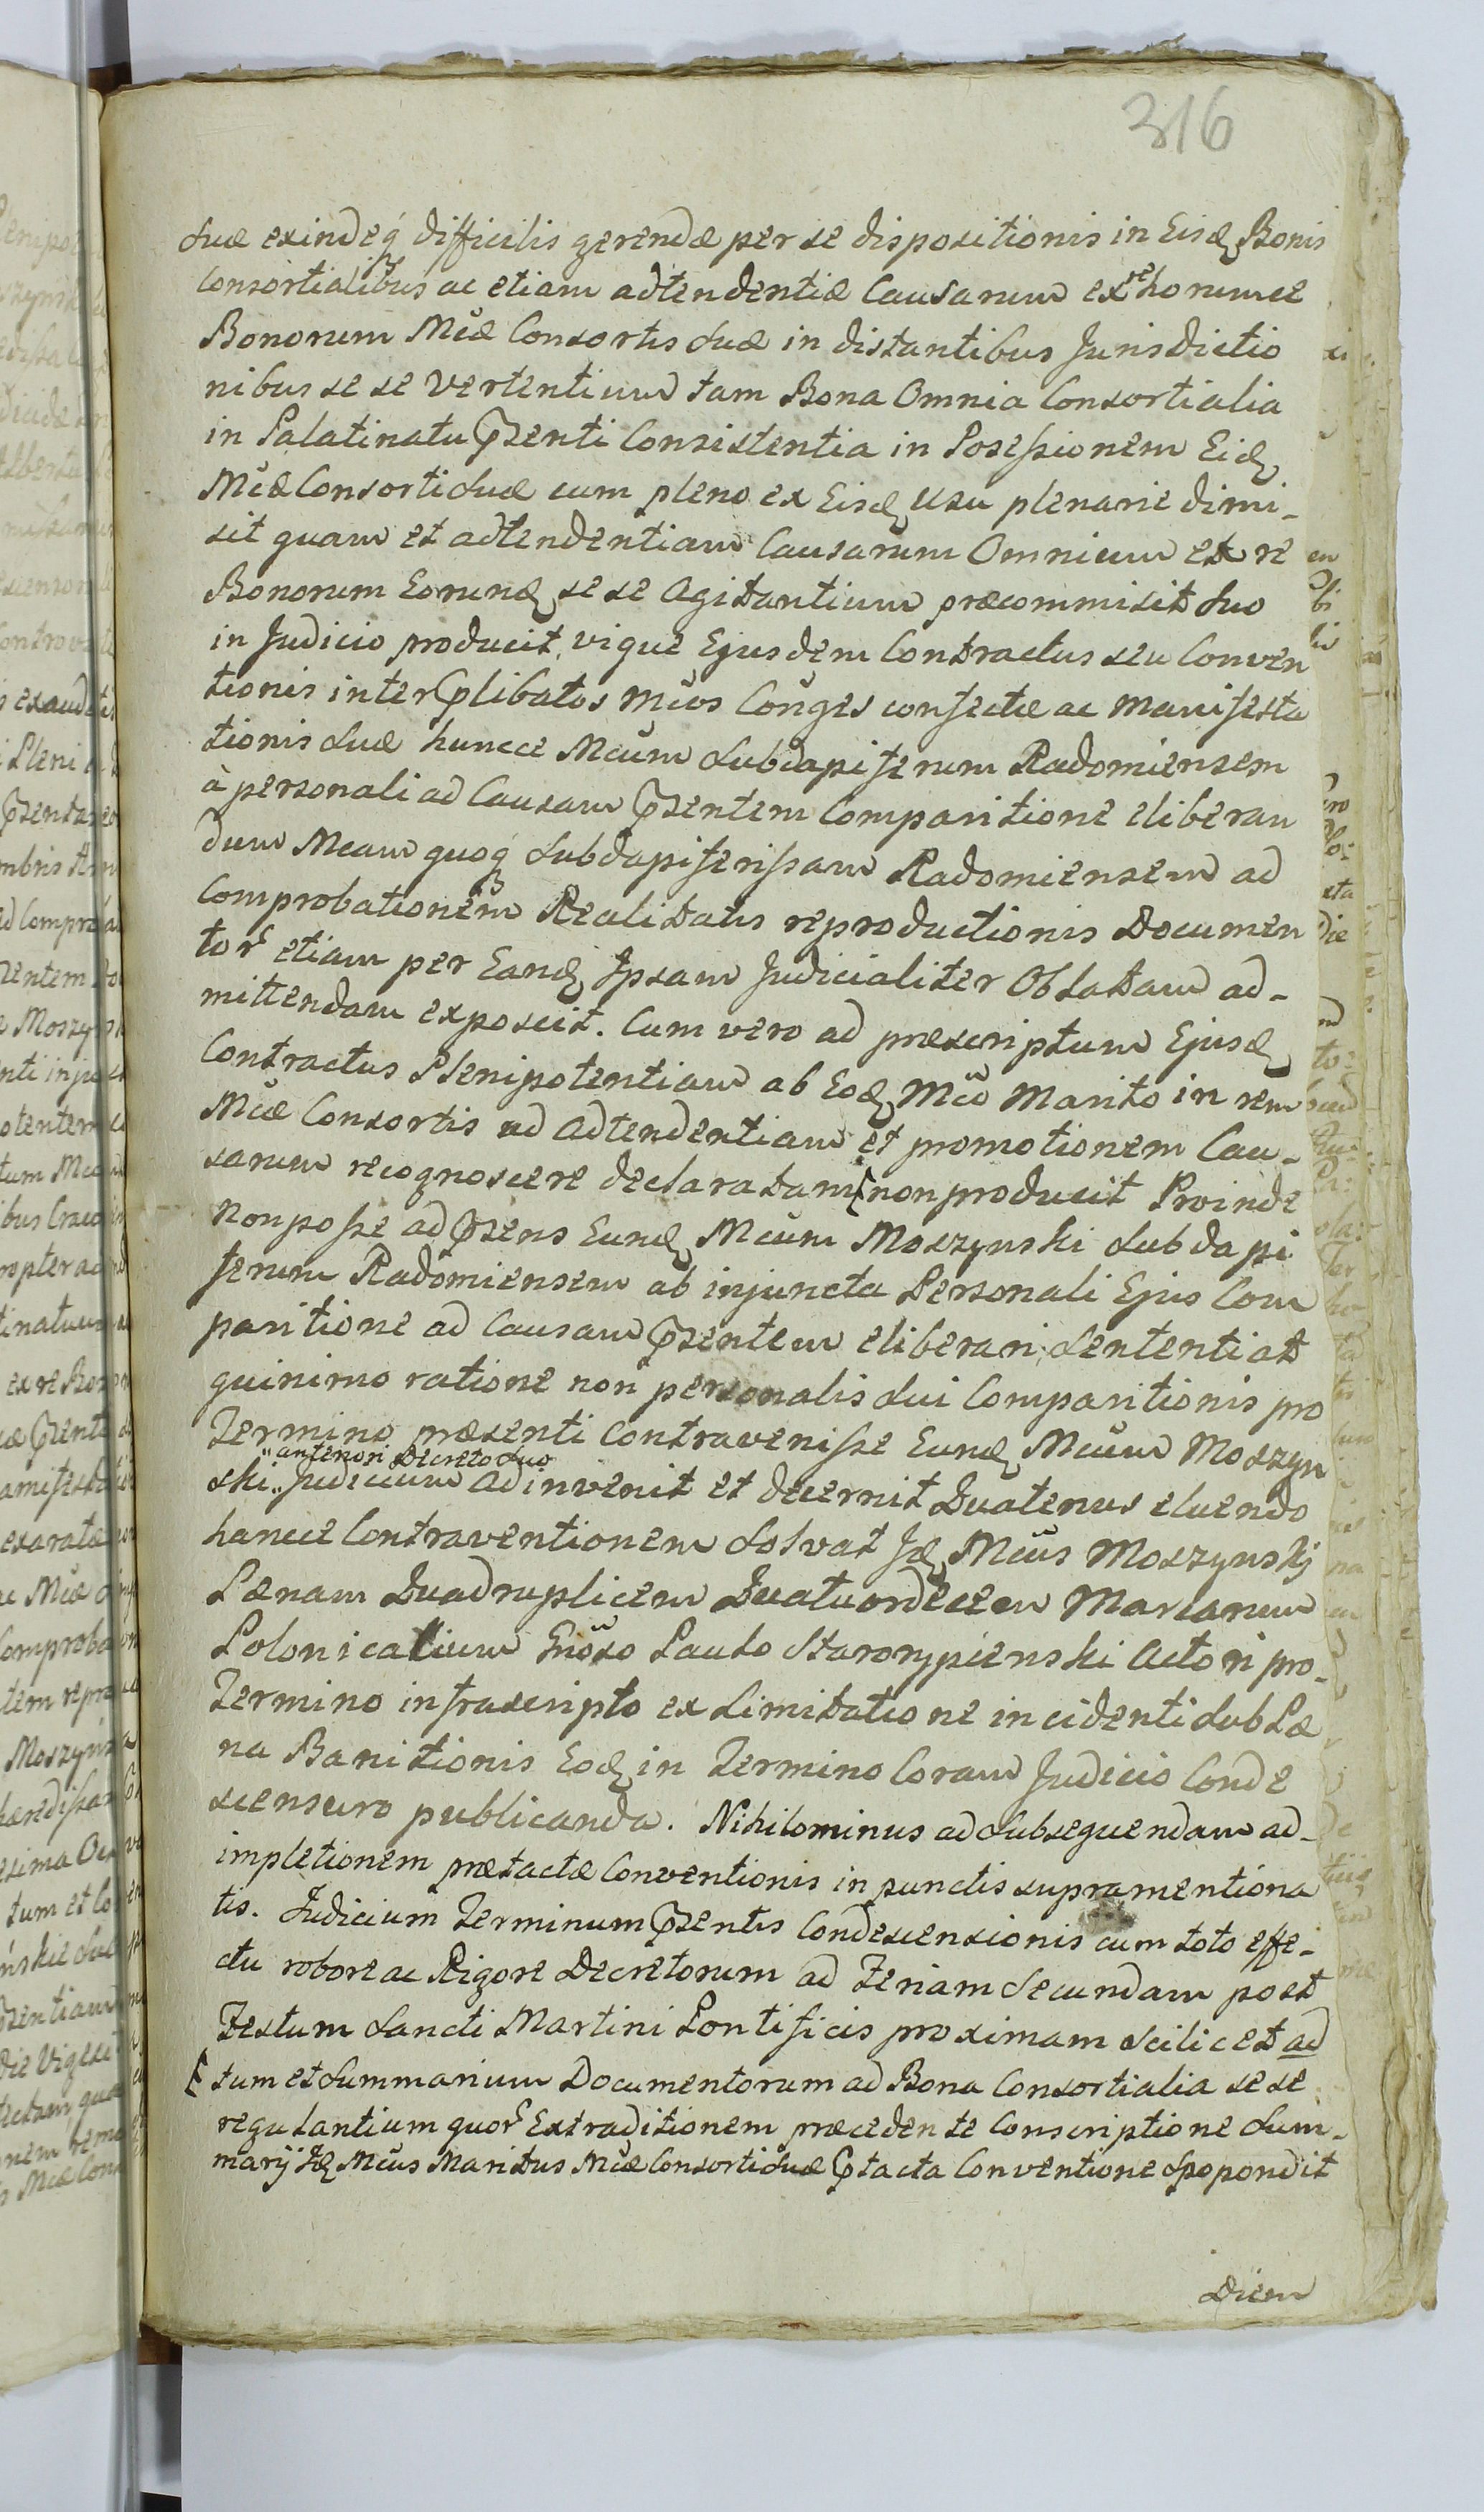 316
suæ exindeq́ difficilis gerendæ per se dispositionis in Eisd Bonis
Consortialibus ac etiam adtendentiæ Causarum ex re horumce
Bonorum Mcæ Consortis suæ in distantibus Jurisdictio
nibus se se vertentium tam Bona Omnia Consortialia
in Palatinatu Pzenti Consistentia in Posessionem Eid
Mcæ Consorti suæ cum pleno ex Eisd usu plenarie dimi-
sit quam et adtendentiam Causarum Omnium ex re
Bonorum Eorund se se Agitantium præcommisit suo
in Judicio producit, vigue Ejusdem Contractus seu Conven
tionis inter Plibatos Mcos Conges confectæ ac Manifesta
tionis suæ huncce Mcum Subdapiferum Radomiensem
à personali ad Causam Pzentem Comparitione eliberan
dum Mcam quoq́ Subdapiferissam Radomiensem ad
Comprobationem Realitatis reproductionis Documen
tor etiam per Eand Ipsam Judicialiter Oblatam ad-
mittendam exposcit. Cum vero ad præscriptum Ejusd
Contractus Plenipotentiam ab Eod Mco Marito in rem
Mcæ Consortis ad Adtendentiam et promotionem Cau-
sarum recognoscere declaratam non producit Proinde
Non posse ad Pzens Eund Mcum Moszynski Subdapi
ferum Radomiensem ab injuncta Personali Ejus Com
paritione ad Causam Pzentem eliberari, Sententiat
quinimo ratione non personalis sui Comparitionis pro
Termino præsenti Contravenisse Eund Mcum Moszyn
anteriori Decreto suo
ski Judicium adinvenit et decernit Quatenus eluendo
hancce Contraventionem solvat Jd Mcus Moszynskj
Pænam Quadruplicem Quatuordecem Marcarum
Polonicalium Gnoso Paulo Starorypienski Actori pro
Termino infrascripto ex Limitatione incidenti sub Pæ
na Banitionis Eod in Termino Coram Judicio Conde
scensuro publicanda. Nihilominus ad Subsequendam ad-
impletionem prætactæ Conventionis in punctis supramentiona
tis. Judicium Terminum Pzentis Condescensionis cum toto effe-
ctu robore ac Rigore Decretorum ad Feriam Secundam post
Festum Sancti Martini Pontificis proximam scilicet ad
tum et Summarium Documentorum ad Bona Consortialia se se
regulantium quor Extraditionem præcedente Conscriptione Sum-
marij Jd Mcus Maritus Mcæ Consorti suæ Ptacta Conventione spopondit
Diem